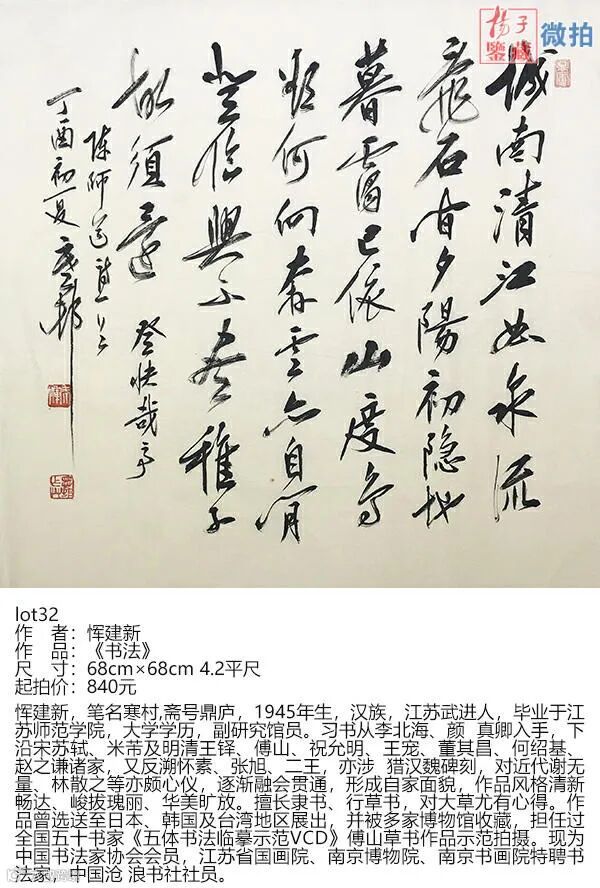 楊子
鑒藏
微拍
城南清江曲泉流
亂石間夕陽初隐地
暮靄已依山度鸟
欲何向奔雲亦自闲
登临興不盡稚子
故须還 登快哉亭
陈师道诗一首
丁酉初夏寒邨
lot32
作 者：恽建新
作 品：《书法》
尺 寸：68cm×68cm 4.2平尺
起拍价：840元
恽建新，笔名寒村,斋号鼎庐，1945年生，汉族，江苏武进人，毕业于江
苏师范学院，大学学历，副研究馆员。习书从李北海、颜 真卿入手，下
沿宋苏轼、米芾及明清王铎、傅山、祝允明、王宠、董其昌、何绍基、
赵之谦诸家，又反溯怀素、张旭、二王，亦涉 猎汉魏碑刻，对近代谢无
量、林散之等亦颇心仪，逐渐融会贯通，形成自家面貌，作品风格清新
畅达、峻拔瑰丽、华美旷放。擅长隶书、行草书，对大草尤有心得。作
品曾选送至日本、韩国及台湾地区展出，并被多家博物馆收藏，担任过
全国五十书家《五体书法临摹示范VCD》傅山草书作品示范拍摄。现为
中国书法家协会会员，江苏省国画院、南京博物院、南京书画院特聘书
法家，中国沧 浪书社社员。